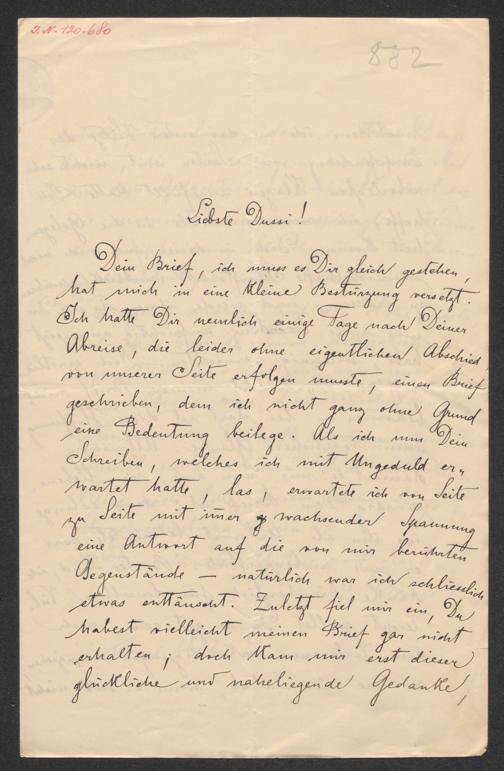 I.N. 120.680
882
Liebste Dussi!
Dein Brief, ich muss es Dir gleich gestehen,
hat mich in eine kleine Bestürzung versetzt.
Ich hatte Dir nemlich einige Tage nach Deiner
Abreise, die leider ohne eigentlichen Abschied
von unserer Seite erfolgen musste, einen Brief
geschrieben, dem ich nicht ganz ohne Grund
eine Bedeutung beilege. Als ich nun Dein
Schreiben, welches ich mit Ungeduld er„
wartet hatte, las, erwartete ich von Seite
zu Seite mit im̅er wachsender Spannung
eine Antwort auf die von mir berührten
Gegenstände — natürlich war ich schliesslich
etwas enttäuscht. Zuletzt fiel mir ein, Du
habest vielleicht meinen Brief gar nicht
erhalten; doch kam mir erst dieser
glückliche und naheliegende Gedanke,